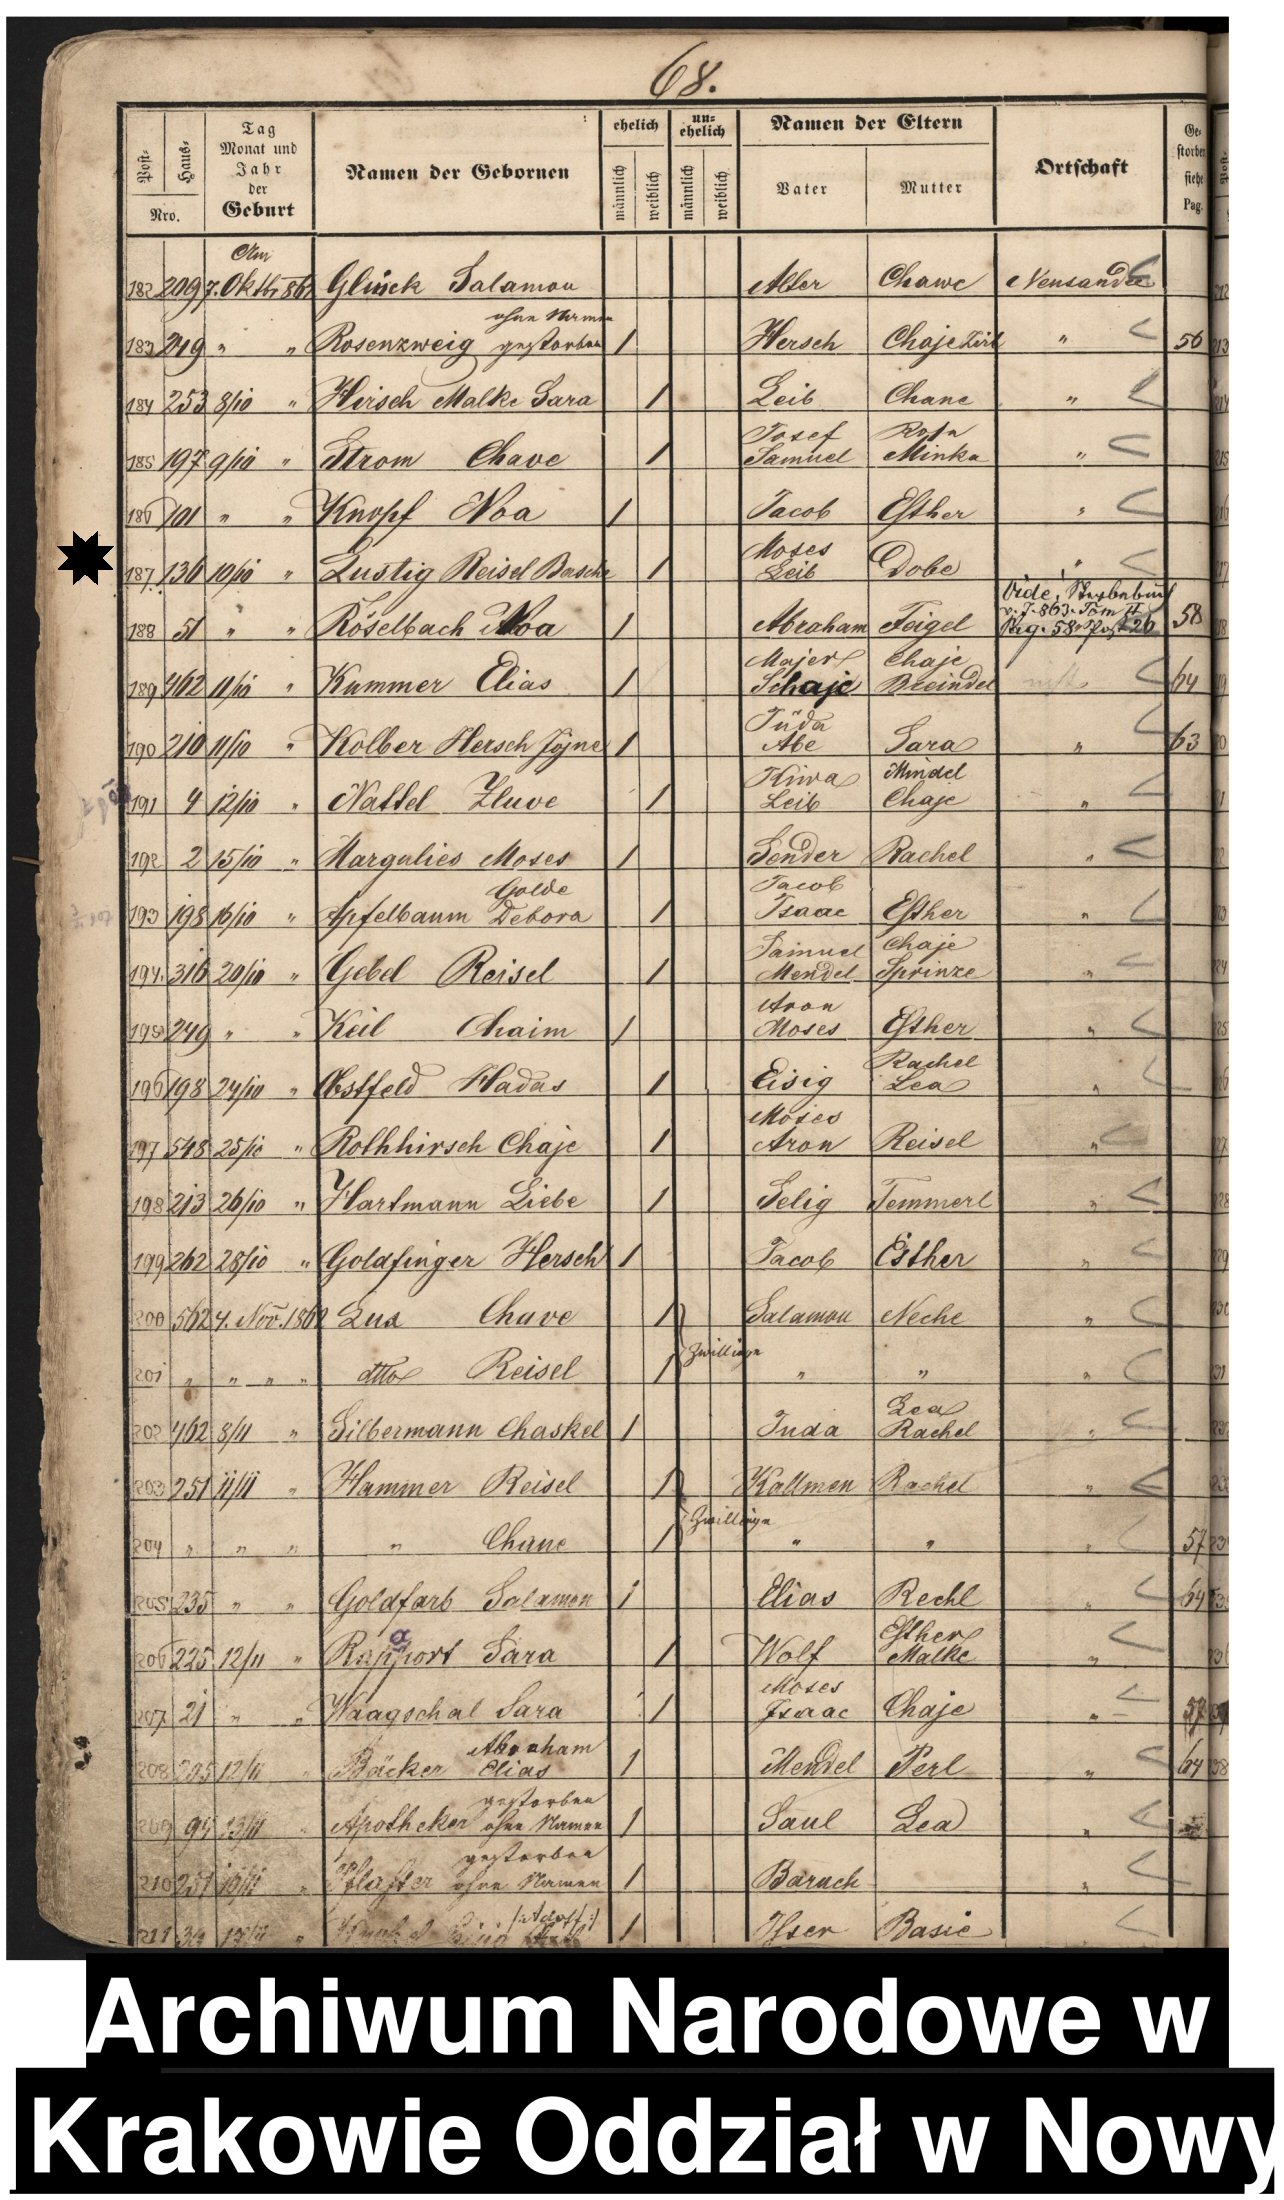 68.
Post- Haus- Nro. Tag Monat und Jahr der Geburt Namen der Gebornen ehelich männlich weiblich un-ehelich männlich weiblich Namen der Eltern Vater Mutter Ortschaft Ge-storben siehe Pag.
Am
182 209 7. Oktbr 862 Glück Salamon Alter Chawe Neusandec
ohne Namen
183 249 " " Rosenzweig gestorben 1 Hersch Chaje Zirl " 56
184 253 8/10 " Hirsch Malke Sara 1 Leib Chane "
Josef Rosa
185 197 9/10 " Strom Chave 1 Samuel Minka "
186 101 " " Knopf Noa 1 Jacob Esther "
Moses
187 136 10/10 " Lustig Reisel Basche 1 Leib Dobe "
Vide Sterbebuch
v. J. 863. Tom II
188 51 " " Röselbach Noa 1 Abraham Feigel Pag. 58 Post 26 58
Majer Chaje
189 462 11/10 " Kummer Elias 1 Schaje Breindel 64
Juda
190 210 11/10 " Kolber Hersch Jojne 1 Abe Sara " 63
Kiwa Mindel
191 4 12/10 " Nattel Zluve 1 Leib Chaje "
192 2 15/10 " Margulies Moses 1 Sender Rachel "
Golde Jacob
193 198 16/10 " Apfelbaum Debora 1 Isaac Esther "
Samuel Chaje
194 316 20/10 " Gebel Reisel 1 Mendel Sprinze "
Aron
195 249 " " Keil Chaim 1 Moses Esther "
Rachel
196 198 24/10 " Obstfeld Hadas 1 Eisig Lea "
Moses
197 548 25/10 " Rothhirsch Chaje 1 Aron Reisel "
198 213 26/10 " Hartmann Liebe 1 Selig Temmerl "
199 262 28/10 " Goldfinger Hersch 1 Jacob Esther "
200 562 4. Nov. 1862 Lux Chave 1 Salamon Neche "
Zwillinge
201 " " " " dtto Reisel 1 " " "
Lea
202 462 8/11 " Silbermann Chaskel 1 Juda Rachel "
203 251 11/11 " Hammer Reisel 1 Kallmen Rachel "
Zwillinge
204 " " " " Chane 1 " " " 57
205 235 " " Goldfarb Salamon 1 Elias Rechl " 64
a Esther
206 225 12/11 " Rapport Sara 1 Wolf Malke "
Moses
207 21 " " Waagschal Sara 1 Isaac Chaje " 57
Abraham
208 295 12/11 " Bäcker Elias 1 Mendel Perl " 64
gestorben
209 94 13/11 Apotheker ohne Namen 1 Saul Lea "
gestorben
210 251 " Pflaster ohne Namen 1 Baruch "
211 " 1 Isser Basie
Archiwum Narodowe w
Krakowie Oddział w Nowy